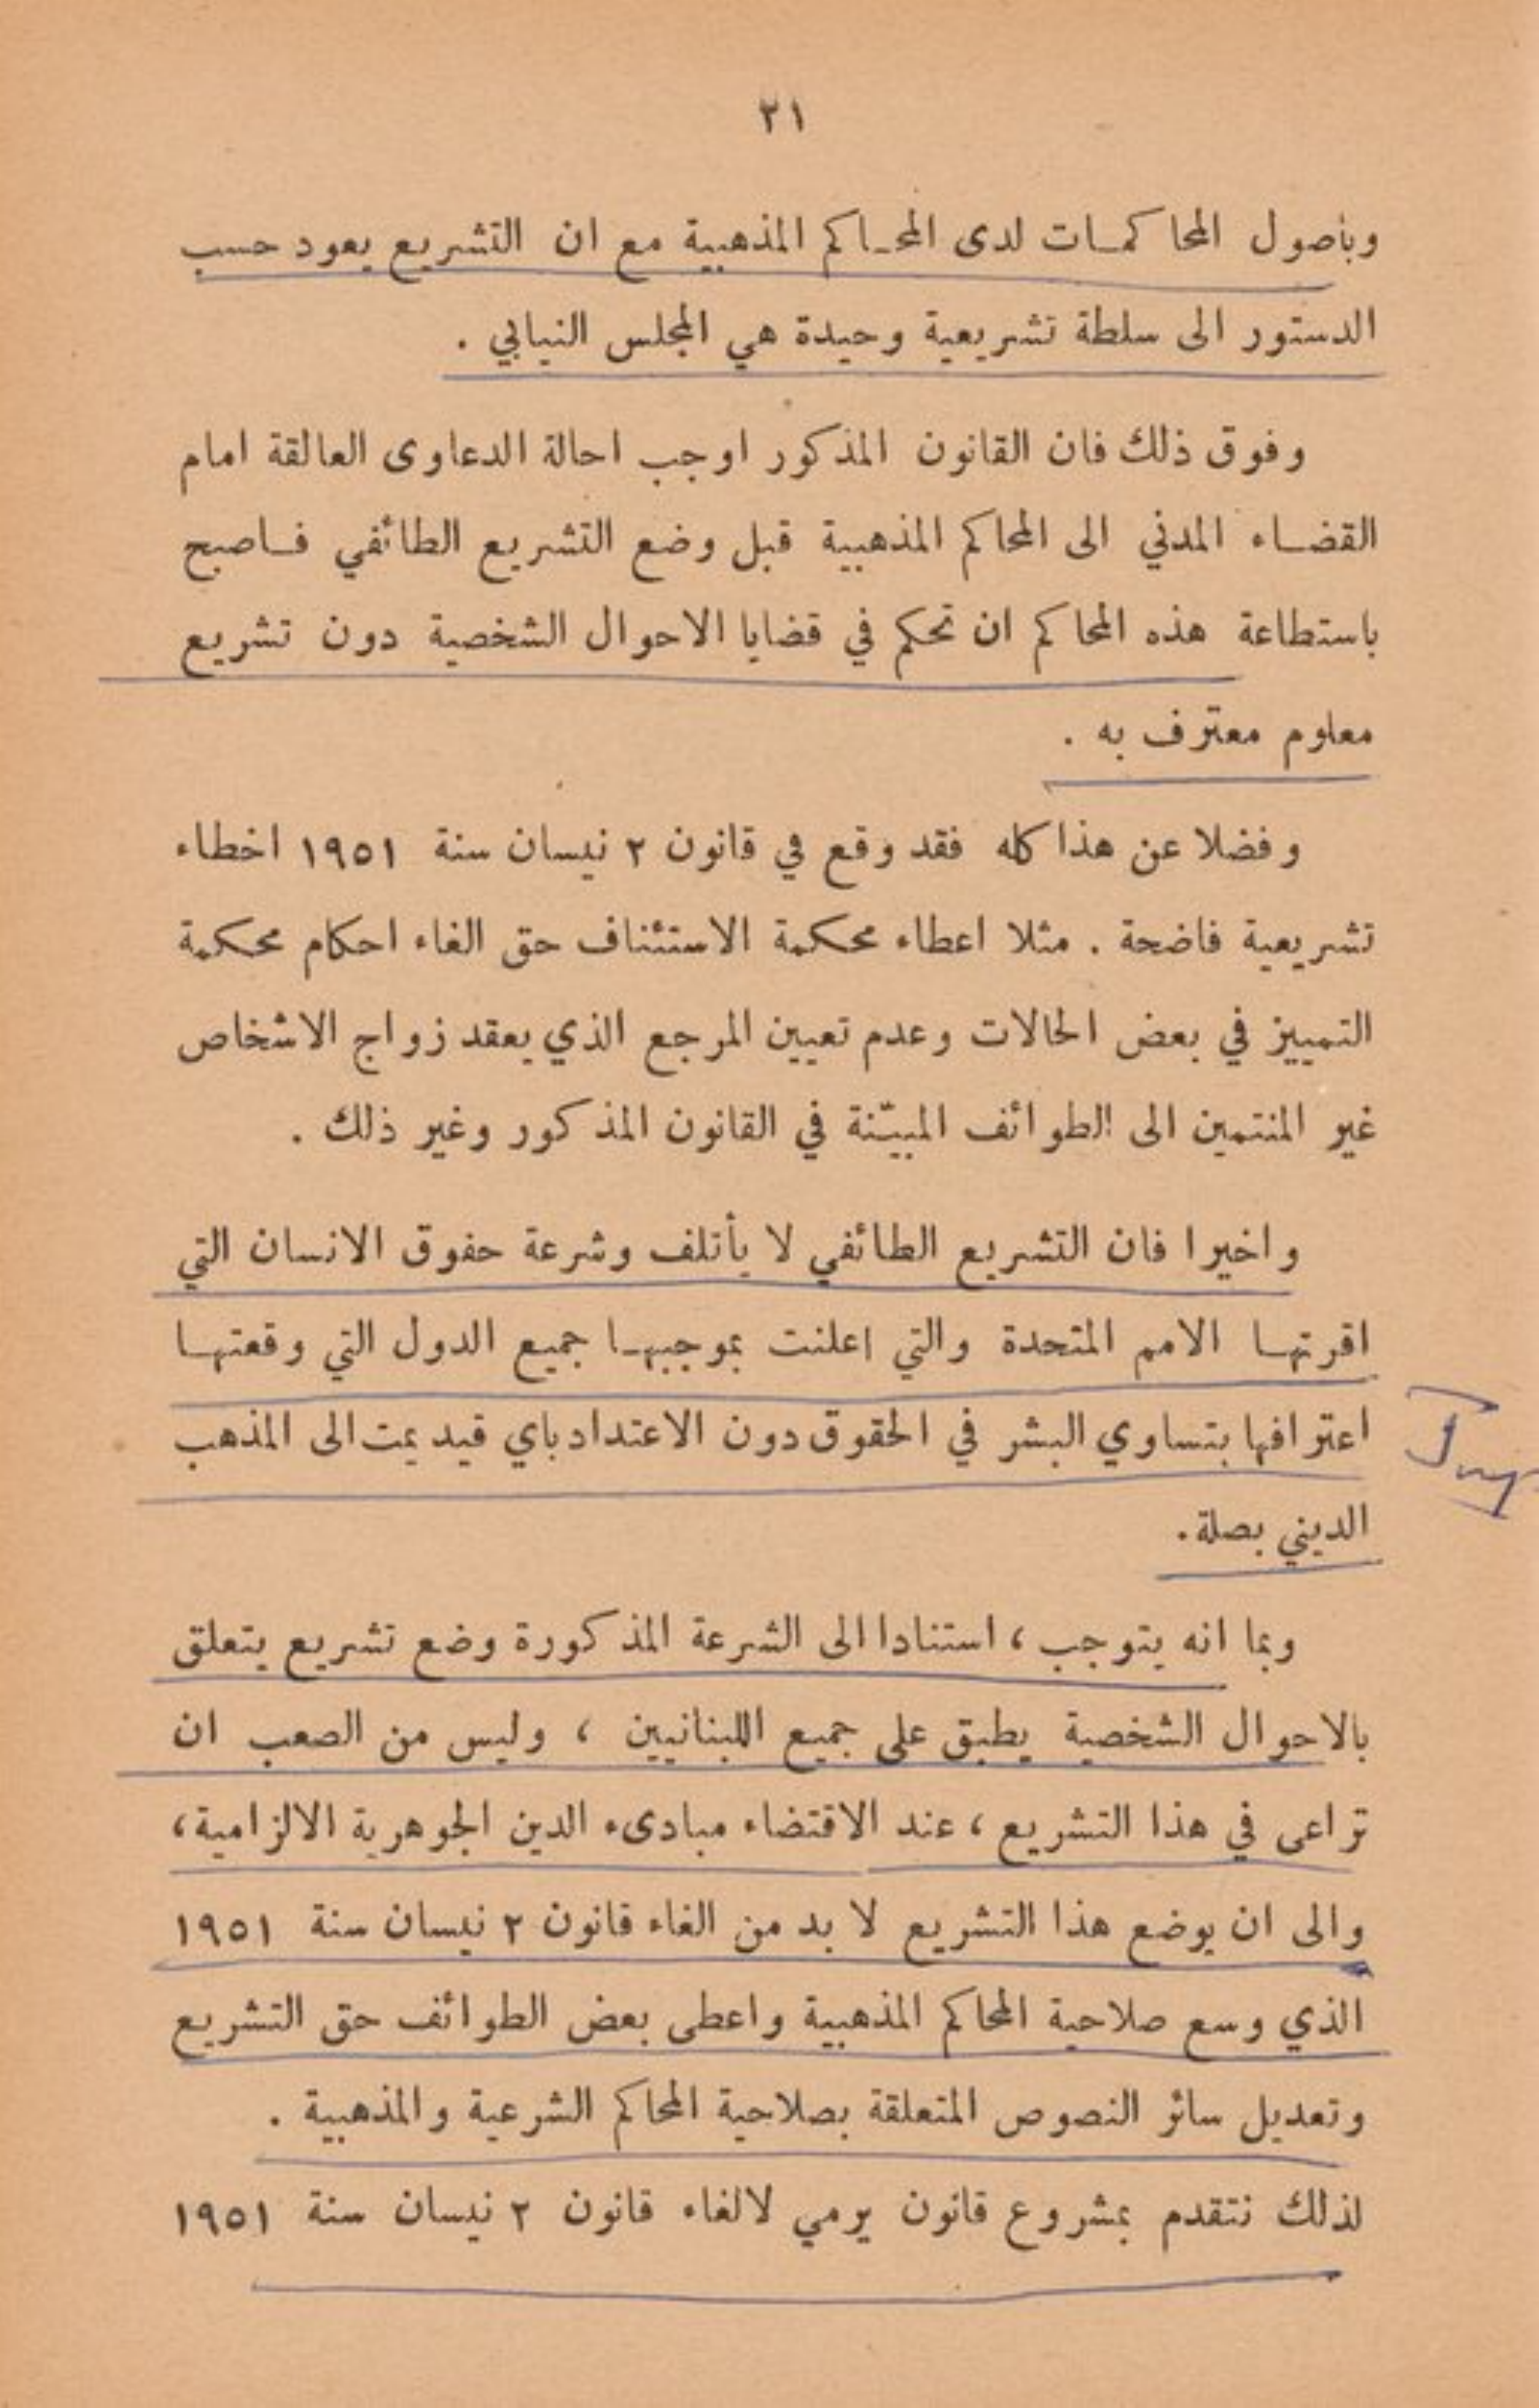 ٢١
وبأصول المحاكمات لدى المحاكم المذهبية مع ان التشريع يعود حسب
الدستور الى سلطة تشريعية وحيدة هي المجلس النيابي .
وفوق ذلك فان القانون المذكور اوجب احالة الدعاوى العالقة امام
القضاء المدني الى المحاكم المذهبية قبل وضع التشريع الطائفي فاصبح
باستطاعة هذه المحاكم ان تحكم في قضايا الاحوال الشخصية دون تشريع
معلوم معترف به .
وفضلا عن هذا كله فقد وقع في قانون ٢ نيسان سنة ١٩٥١ اخطاء
تشريعية فاضحة . مثلا اعطاء محكمة الاستئناف حق الغاء احكام محكمة
التمييز في بعض الحالات وعدم تعيين المرجع الذي يعقد زواج الاشخاص
غير المنتمين الى الطوائف المبيّنة في القانون المذكور وغير ذلك .
واخيرا فان التشريع الطائفي لا يأتلف وشرعة حفوق الانسان التي
اقرتها الامم المتحدة والتي اعلنت بموجبها جميع الدول التي وقعتها
اعترافها بتساوي البشر في الحقوق دون الاعتداد باي قيد يمت الى المذهب
الديني بصلة.
وبما انه يتوجب ، استنادا الى الشرعة المذكورة وضع تشريع يتعلق
بالاحوال الشخصية يطبق على جميع اللبنانيين ، وليس من الصعب ان
تراعى في هذا التشريع ، عند الاقتضاء مبادىء الدين الجوهرية الالزامية ،
والى ان يوضع هذا التشريع لا بد من الغاء قانون ٢ نيسان سنة ١٩٥١
الذي وسع صلاحية المحاكم المذهبية واعطى بعض الطوائف حق التشريع
وتعديل سائر النصوص المتعلقة بصلاحية المحاكم الشرعية والمذهبية .
لذلك نتقدم بمشروع قانون يرمي لالغاء قانون ٢ نيسان سنة ١٩٥١